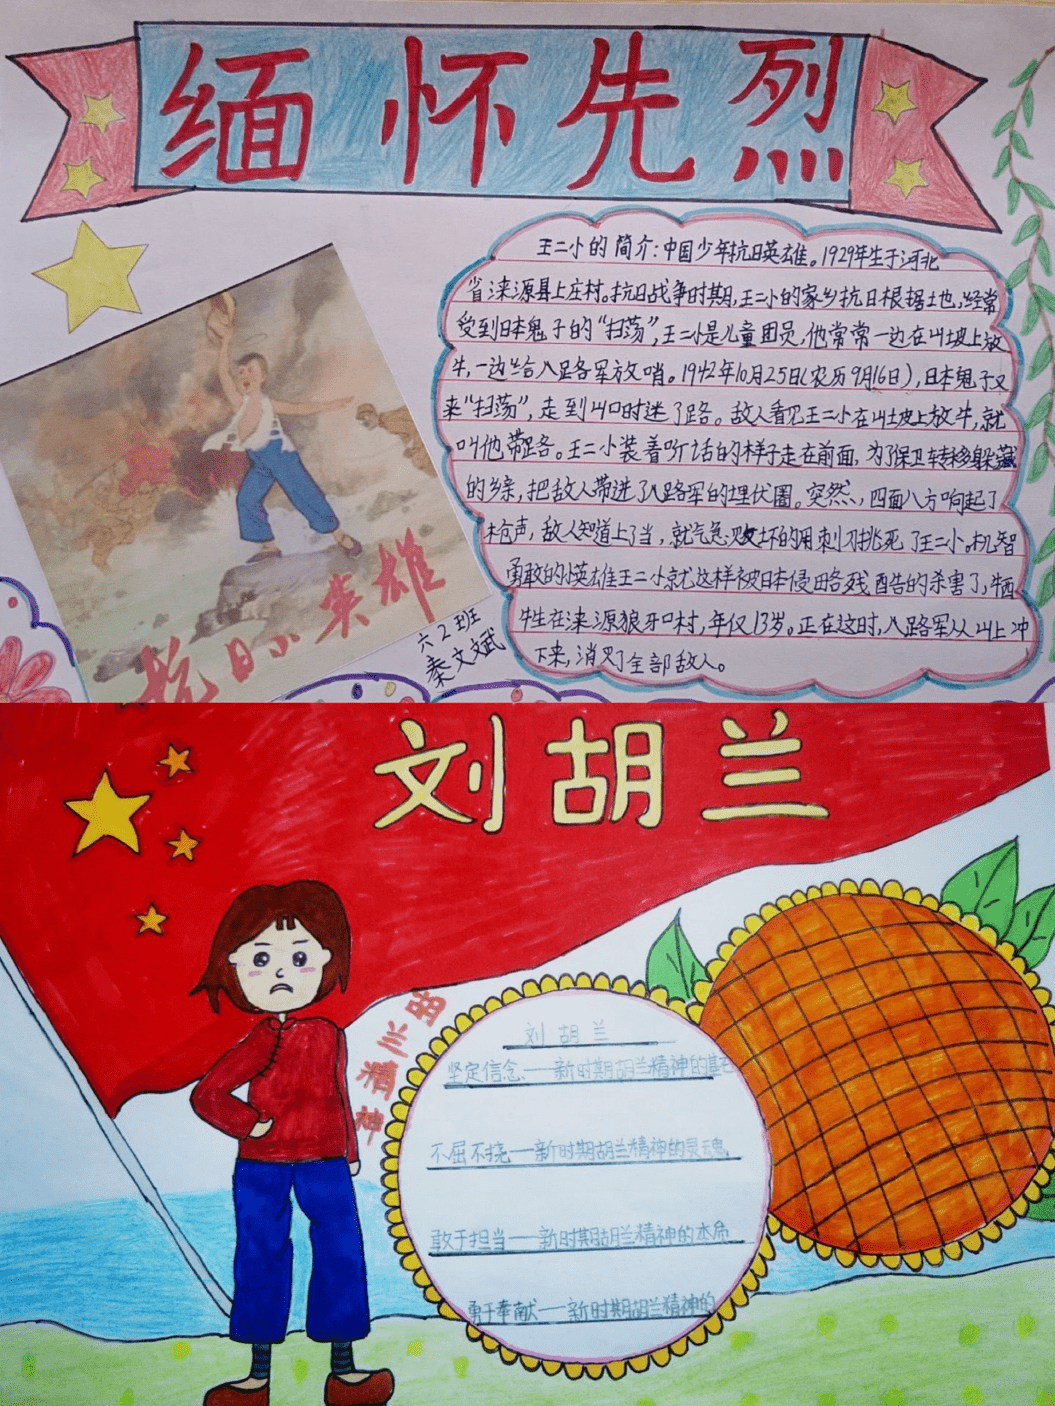 缅怀先烈
王二小的简介:中国少年抗日英雄。1929年生于河北
省涞源县上庄村。抗日战争时期,王二小的家乡抗日根据土也,经常
受到日本鬼子的“扫荡”,王二小是儿童团员,他常常一边在山坡上放
牛,一边给八路军放哨。1942年10月25日(农历9月16日),日本鬼子又
来“扫荡”,走到山口时迷了路。敌人看见王二小在山坡上放牛,就
叫他带路。王二小装着听话的样子走在前面,为了保卫转移躲藏
的乡亲,把敌人带进了八路军的埋伏圈。突然,四面八方响起了
枪声,敌人知道上了当,就气急败坏的用刺刀挑死了王二小。机智
勇敢的小英雄王二小就这样被日本侵略残酷的杀害了,牺
牲在涞源狼牙口村,年仅13岁。正在这时,八路军从山上冲
下来,消灭了全部敌人。
抗日小英雄
六2班
秦文斌
刘胡兰
胡兰精神
刘胡兰
坚定信念——新时期胡兰精神的基石
不屈不挠——新时期胡兰精神的灵魂
敢于担当——新时期胡兰精神的本质
勇于奉献——新时期胡兰精神的